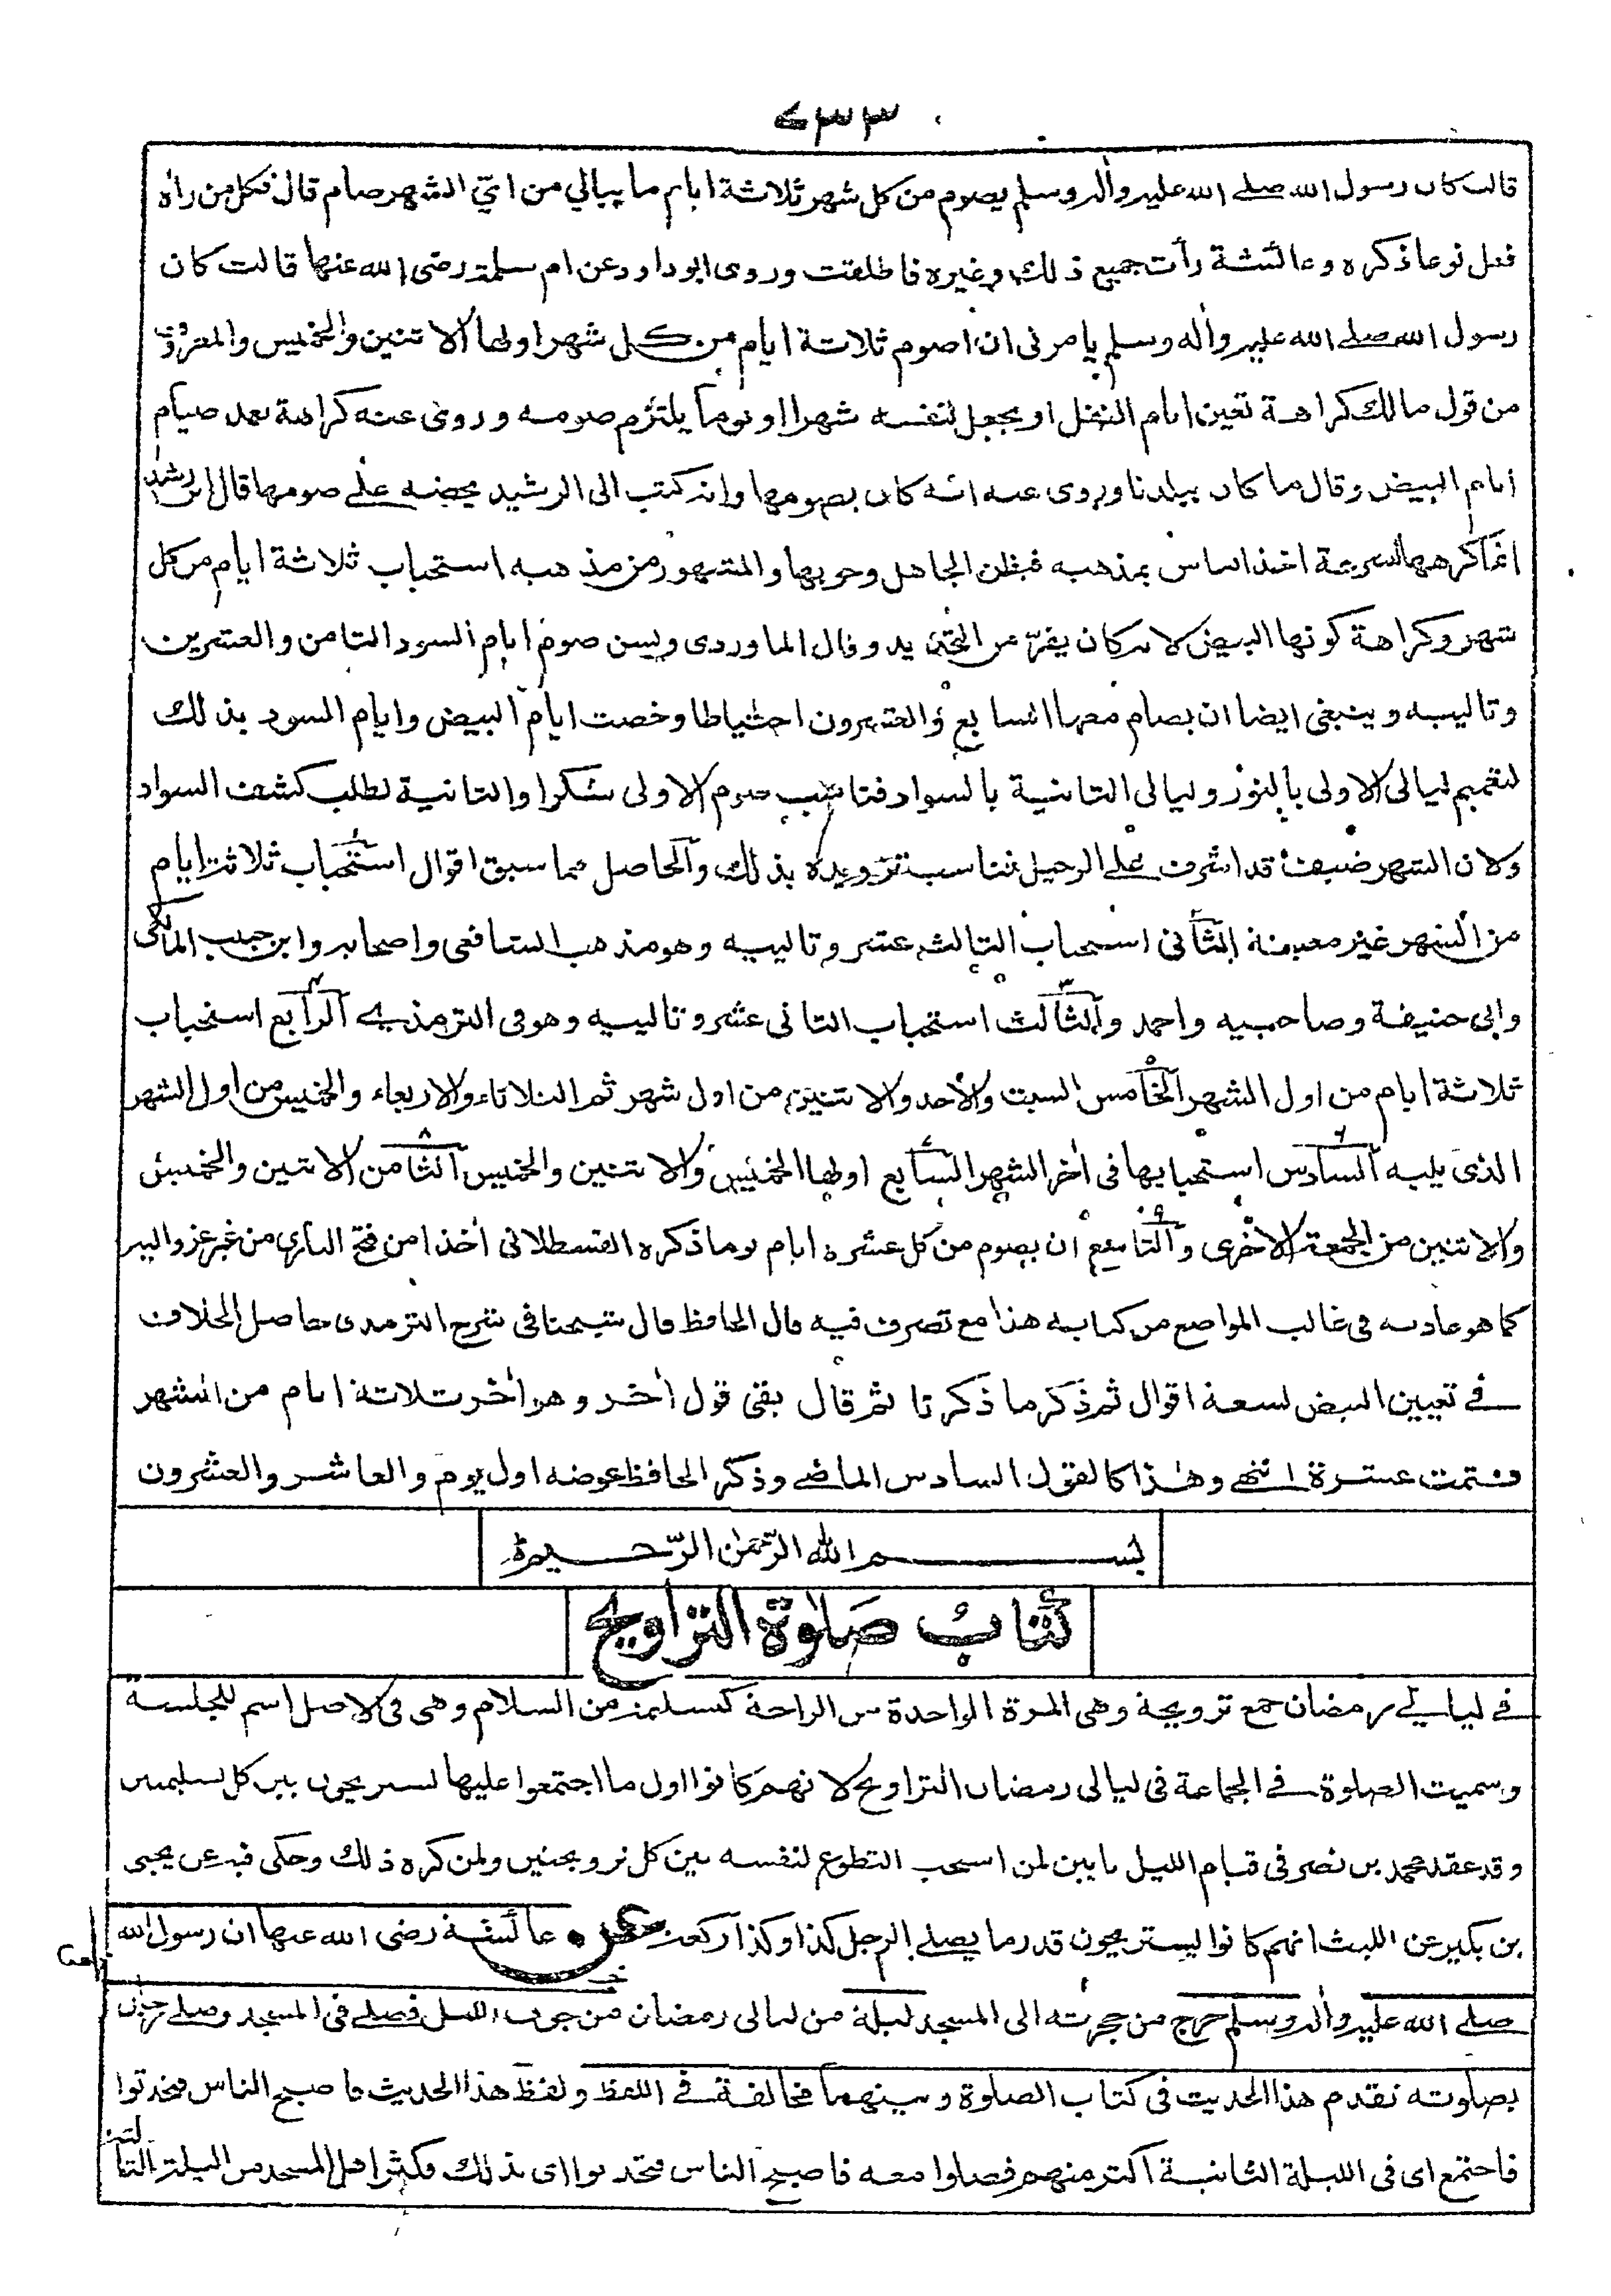 ٧٣٣
قالت كان رسول الله صلے الله عليه واٰله وسلم يصوم من كل شهر ثلاثة ايام ما يبالي من اتى الشهر صام قال فكل من راٰه
فعل نوعا ذكره وعائشة رأت جميع ذلك وغيره فاطلقت وروى ابوداود عن ام سلمة رضى الله عنها قالت كان
رسول الله صلے الله عليه واٰله وسلم يامرنى ان اصوم ثلاثة ايام من كل شهر اولها الاثنين والخميس والمعروف
من قول مالك كراهة تعين ايام النفل او يجعل لنفسه شهرا او يوما يلتزم صومه وروى عنه كراهة تعمد صيام
ايام البيض وقال ما كان ببلدنا وروى عنه انه كان يصومها وانه كتب الى الرشيد يحضه علے صومها قال ابن رشد
انما كرهها لسرعة اخذ الناس بمذهبه فيظن الجاهل وجوبها والمشهور من مذهبه استحباب ثلاثة ايام من كل
شهر وكراهة كونها البيض لانه كان يفر من التحديد وقال الماوردى ويسن صوم ايام السود الثامن والعشرين
وتالييه وينبغى ايضا ان يصام معها السابع والعشرون احتياطا وخصت ايام البيض وايام السود بذلك
لتعميم ليالى الاولى بالنور وليالى الثانية بالسواد فناسب صوم الاولى شكرا والثانية لطلب كشف السواد
ولان الشهر ضيف قد اشرف علے الرحيل فناسب تزويده بذلك والحاصل مما سبق اقوال استحباب ثلاثة ايام
من الشهر غير معينة الثانى استحباب الثالث عشر وتالييه وهو مذهب الشافعى واصحابه وابن حبيب المالكى
وابى حنيفة وصاحبيه واحمد والثالث استحباب الثانى عشر وتالييه وهو فى الترمذے الرابع استحباب
ثلاثة ايام من اول الشهر الخامس السبت والاحد والاثنين من اول شهر ثم الثلاثاء والاربعاء والخميس من اول الشهر
الذى يليه السادس استحبابها فى اٰخر الشهر السابع اولها الخميس والاثنين والخميس الثامن الاثنين والخميس
والاثنين من الجمعة الاخرى والتاسع ان يصوم من كل عشرة ايام يوما ذكره القسطلانى اٰخذا من فتح البارى من غير عزو اليه
كما هو عادته فى غالب المواضع من كتابه هذا مع تصرف فيه قال الحافظ قال شيخنا فى شرح الترمذى حاصل الخلاف
فے تعيين البيض تسعة اقوال ثم ذكر ما ذكرنا ثم قال بقى قول اٰخر وهو اٰخر ثلاثة ايام من الشهر
فتمت عشرة انتهے وهٰذا كالقول السادس الماضے وذكر الحافظ عوضه اول يوم والعاشر والعشرون
بسم الله الرّحمٰن الرّحيم
كتاب صلوة التراويح
فے ليالے رمضان جمع ترويحة وهى المرة الواحدة من الراحة كتسليمة من السلام وهى فى الاصل اسم للجلسة
وسميت الصلوة فے الجماعة فى ليالى رمضان التراويح لانهم كانوا اول ما اجتمعوا عليها يستريحون بين كل تسليمتين
وقد عقد محمد بن نصر فى قيام الليل بابين لمن استحب التطوع لنفسه بين كل ترويحتين ولمن كره ذلك وحكى فيه عن يحيى
بن بكير عن الليث انهم كانوا يستريحون قدر ما يصلے الرجل كذا وكذا ركعة عن عائشة رضى الله عنها ان رسول الله
صلے الله عليه واٰله وسلم خرج من حجرته الى المسجد ليلة من ليالى رمضان من جوف الليل فصلے فى المسجد وصلے رجال
بصلوته تقدم هذا الحديث فى كتاب الصلوة وبينهما مخالفة فے اللفظ ولفظ هذا الحديث فاصبح الناس فتحدثوا
فاجتمع اى فى الليلة الثانية اكثر منهم فصلوا معه فاصبح الناس فتحدثوا اى بذلك فكثر اهل المسجد من الليلة الثالثة